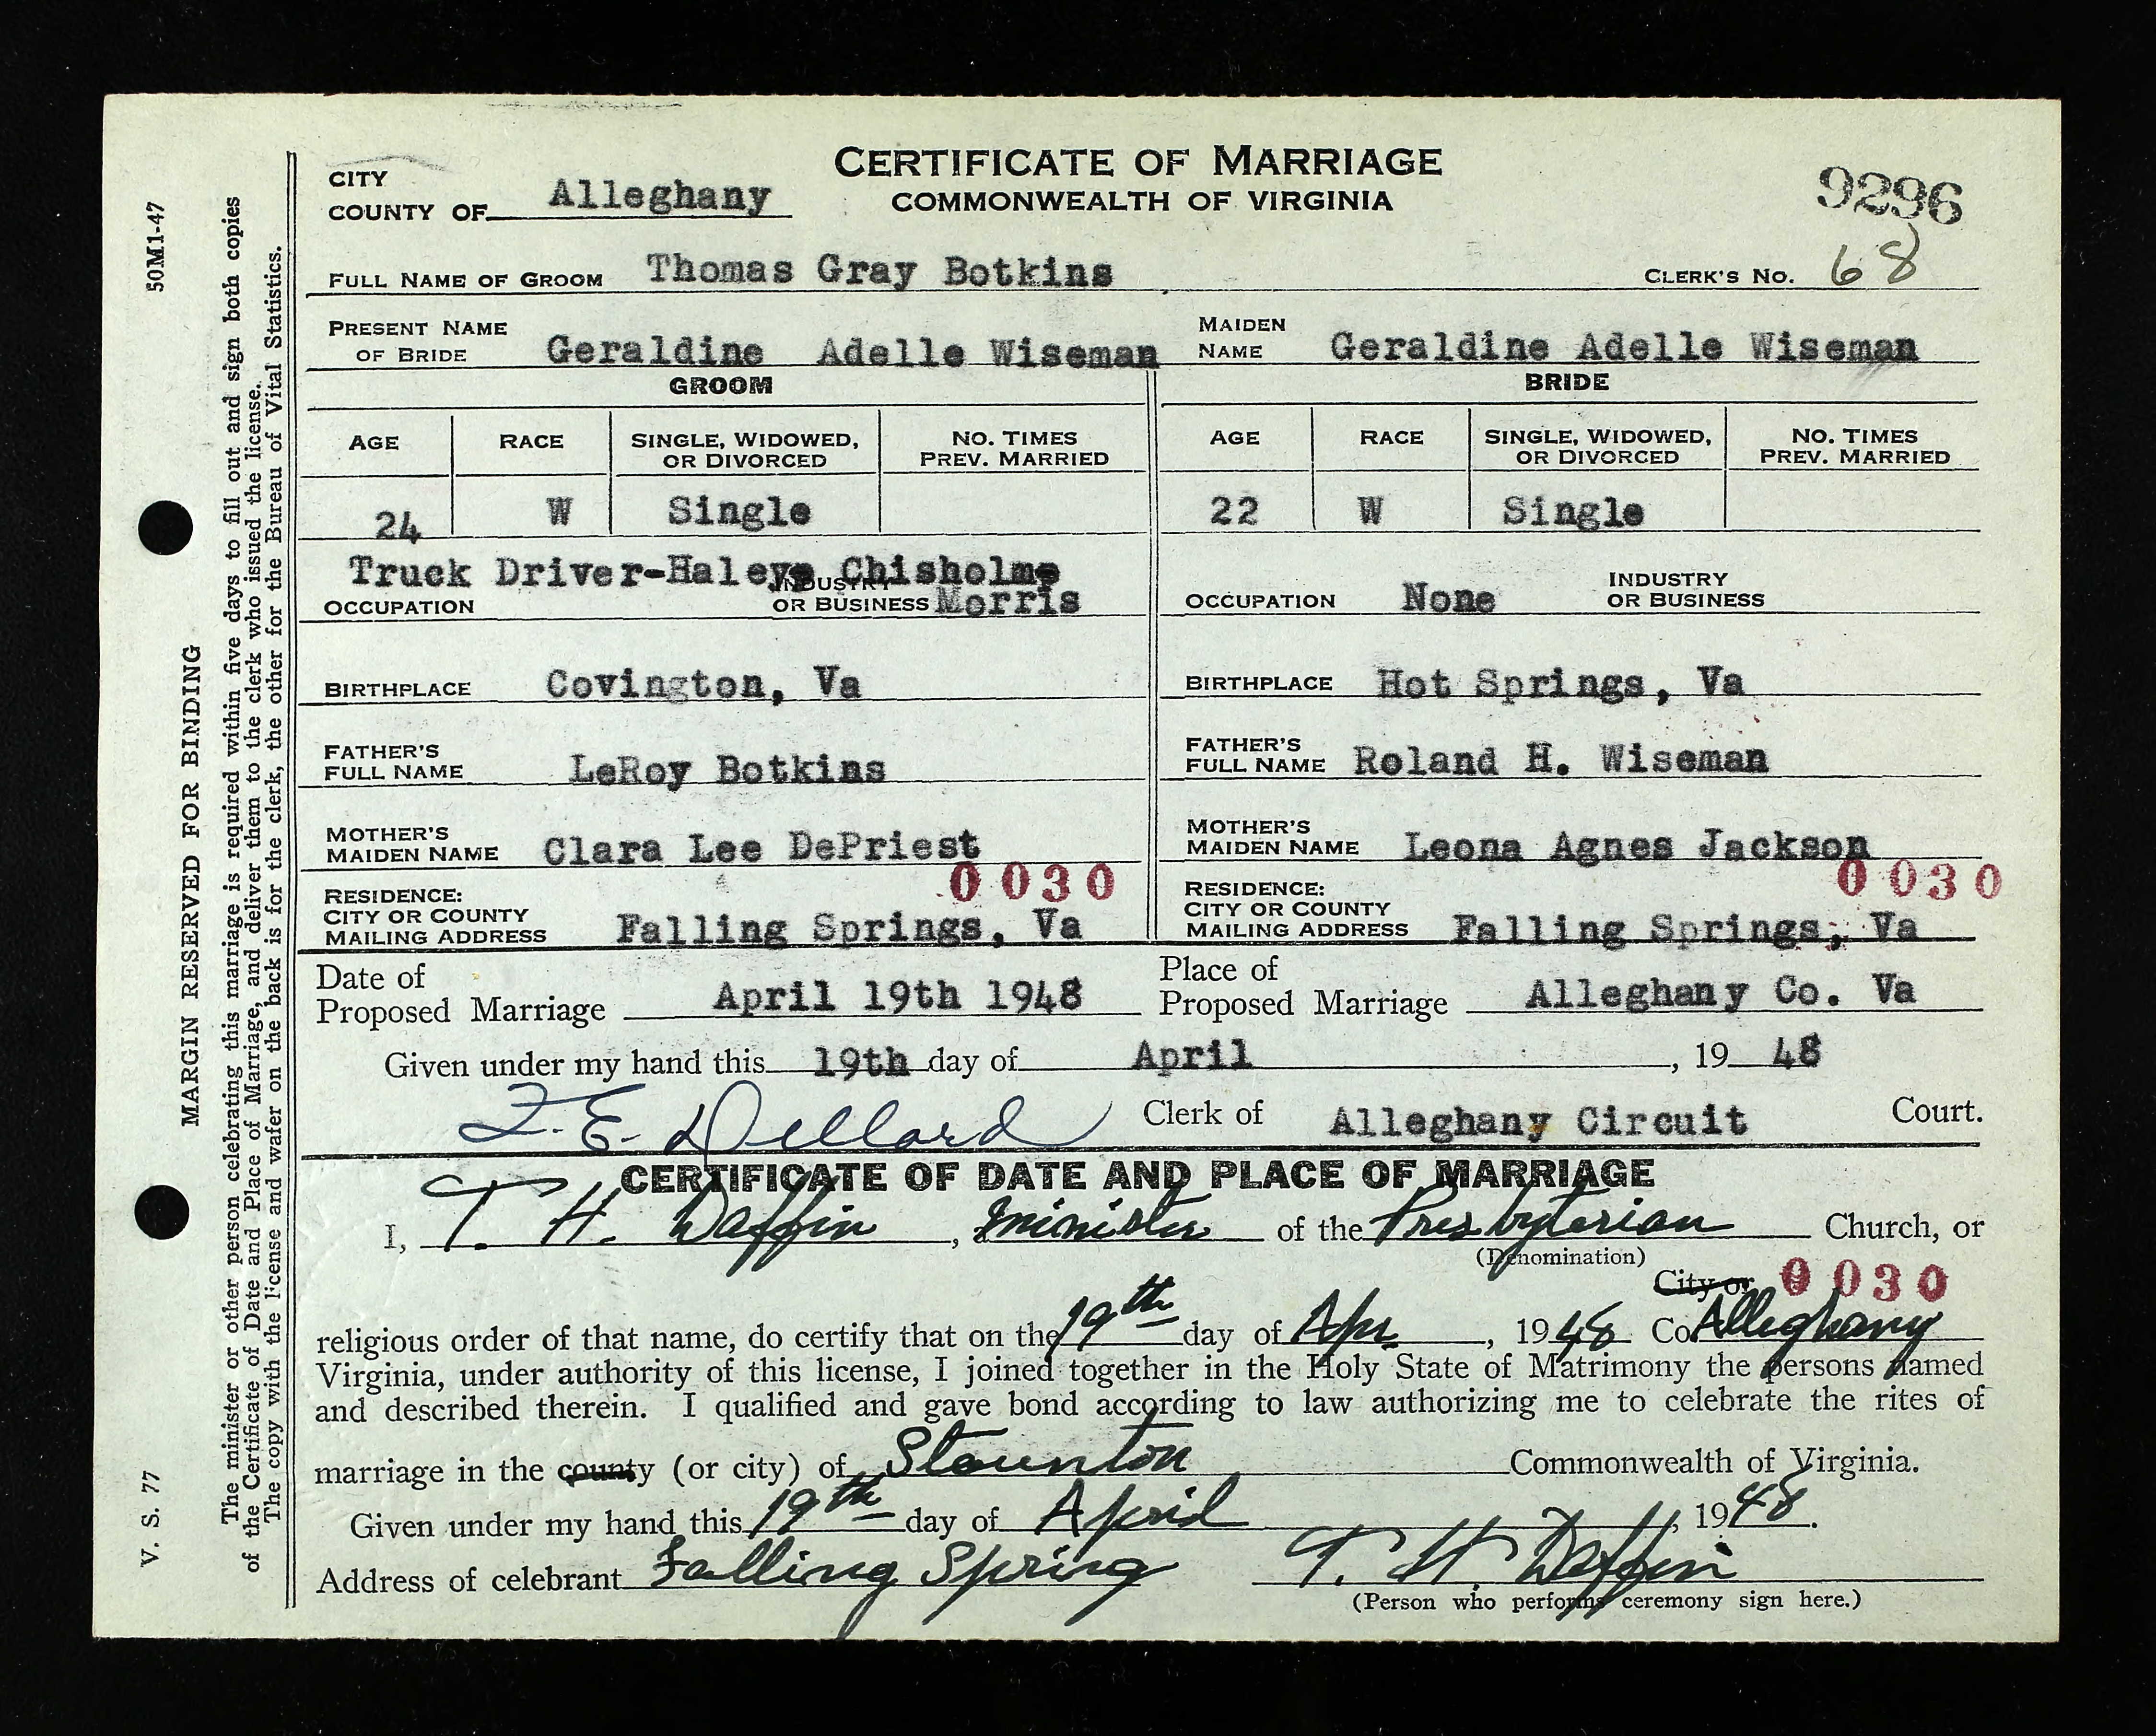 CERTIFICATE OF MARRIAGE
COMMONWEALTH OF VIRGINIA
CITY
COUNTY OF Alleghany
9296
FULL NAME OF GROOM Thomas Gray Botkins CLERK'S NO. 68
PRESENT NAME OF BRIDE Geraldine Adelle Wiseman MAIDEN NAME Geraldine Adelle Wiseman
GROOM BRIDE
AGE RACE SINGLE, WIDOWED, OR DIVORCED NO. TIMES PREV. MARRIED AGE RACE SINGLE, WIDOWED, OR DIVORCED NO. TIMES PREV. MARRIED
24 W Single 22 W Single
Truck Driver-Haleys Chisholms
OCCUPATION INDUSTRY OR BUSINESS Morris OCCUPATION None INDUSTRY OR BUSINESS
BIRTHPLACE Covington, Va BIRTHPLACE Hot Springs, Va
FATHER'S FULL NAME LeRoy Botkins FATHER'S FULL NAME Roland H. Wiseman
MOTHER'S MAIDEN NAME Clara Lee DePriest MOTHER'S MAIDEN NAME Leona Agnes Jackson
0030 0030
RESIDENCE: CITY OR COUNTY MAILING ADDRESS Falling Springs, Va RESIDENCE: CITY OR COUNTY MAILING ADDRESS Falling Springs, Va
Date of Proposed Marriage April 19th 1948 Place of Proposed Marriage Alleghany Co. Va
Given under my hand this 19th day of April, 19 48
F. E. Dillard Clerk of Alleghany Circuit Court.
CERTIFICATE OF DATE AND PLACE OF MARRIAGE
I, T. H. Daffin, Minister of the Presbyterian Church, or
(Denomination)
City or 0030
religious order of that name, do certify that on the 19th day of Apr., 1948 Co Alleghany
Virginia, under authority of this license, I joined together in the Holy State of Matrimony the persons named
and described therein. I qualified and gave bond according to law authorizing me to celebrate the rites of
marriage in the county (or city) of Staunton Commonwealth of Virginia.
Given under my hand this 19th day of April, 1948.
Address of celebrant Falling Spring T. H. Daffin
(Person who performs ceremony sign here.)
V. S. 77 50M1-47
MARGIN RESERVED FOR BINDING
The minister or other person celebrating this marriage is required within five days to fill out and sign both copies
of the Certificate of Date and Place of Marriage, and deliver them to the clerk who issued the license.
The copy with the license and wafer on the back is for the clerk, the other for the Bureau of Vital Statistics.